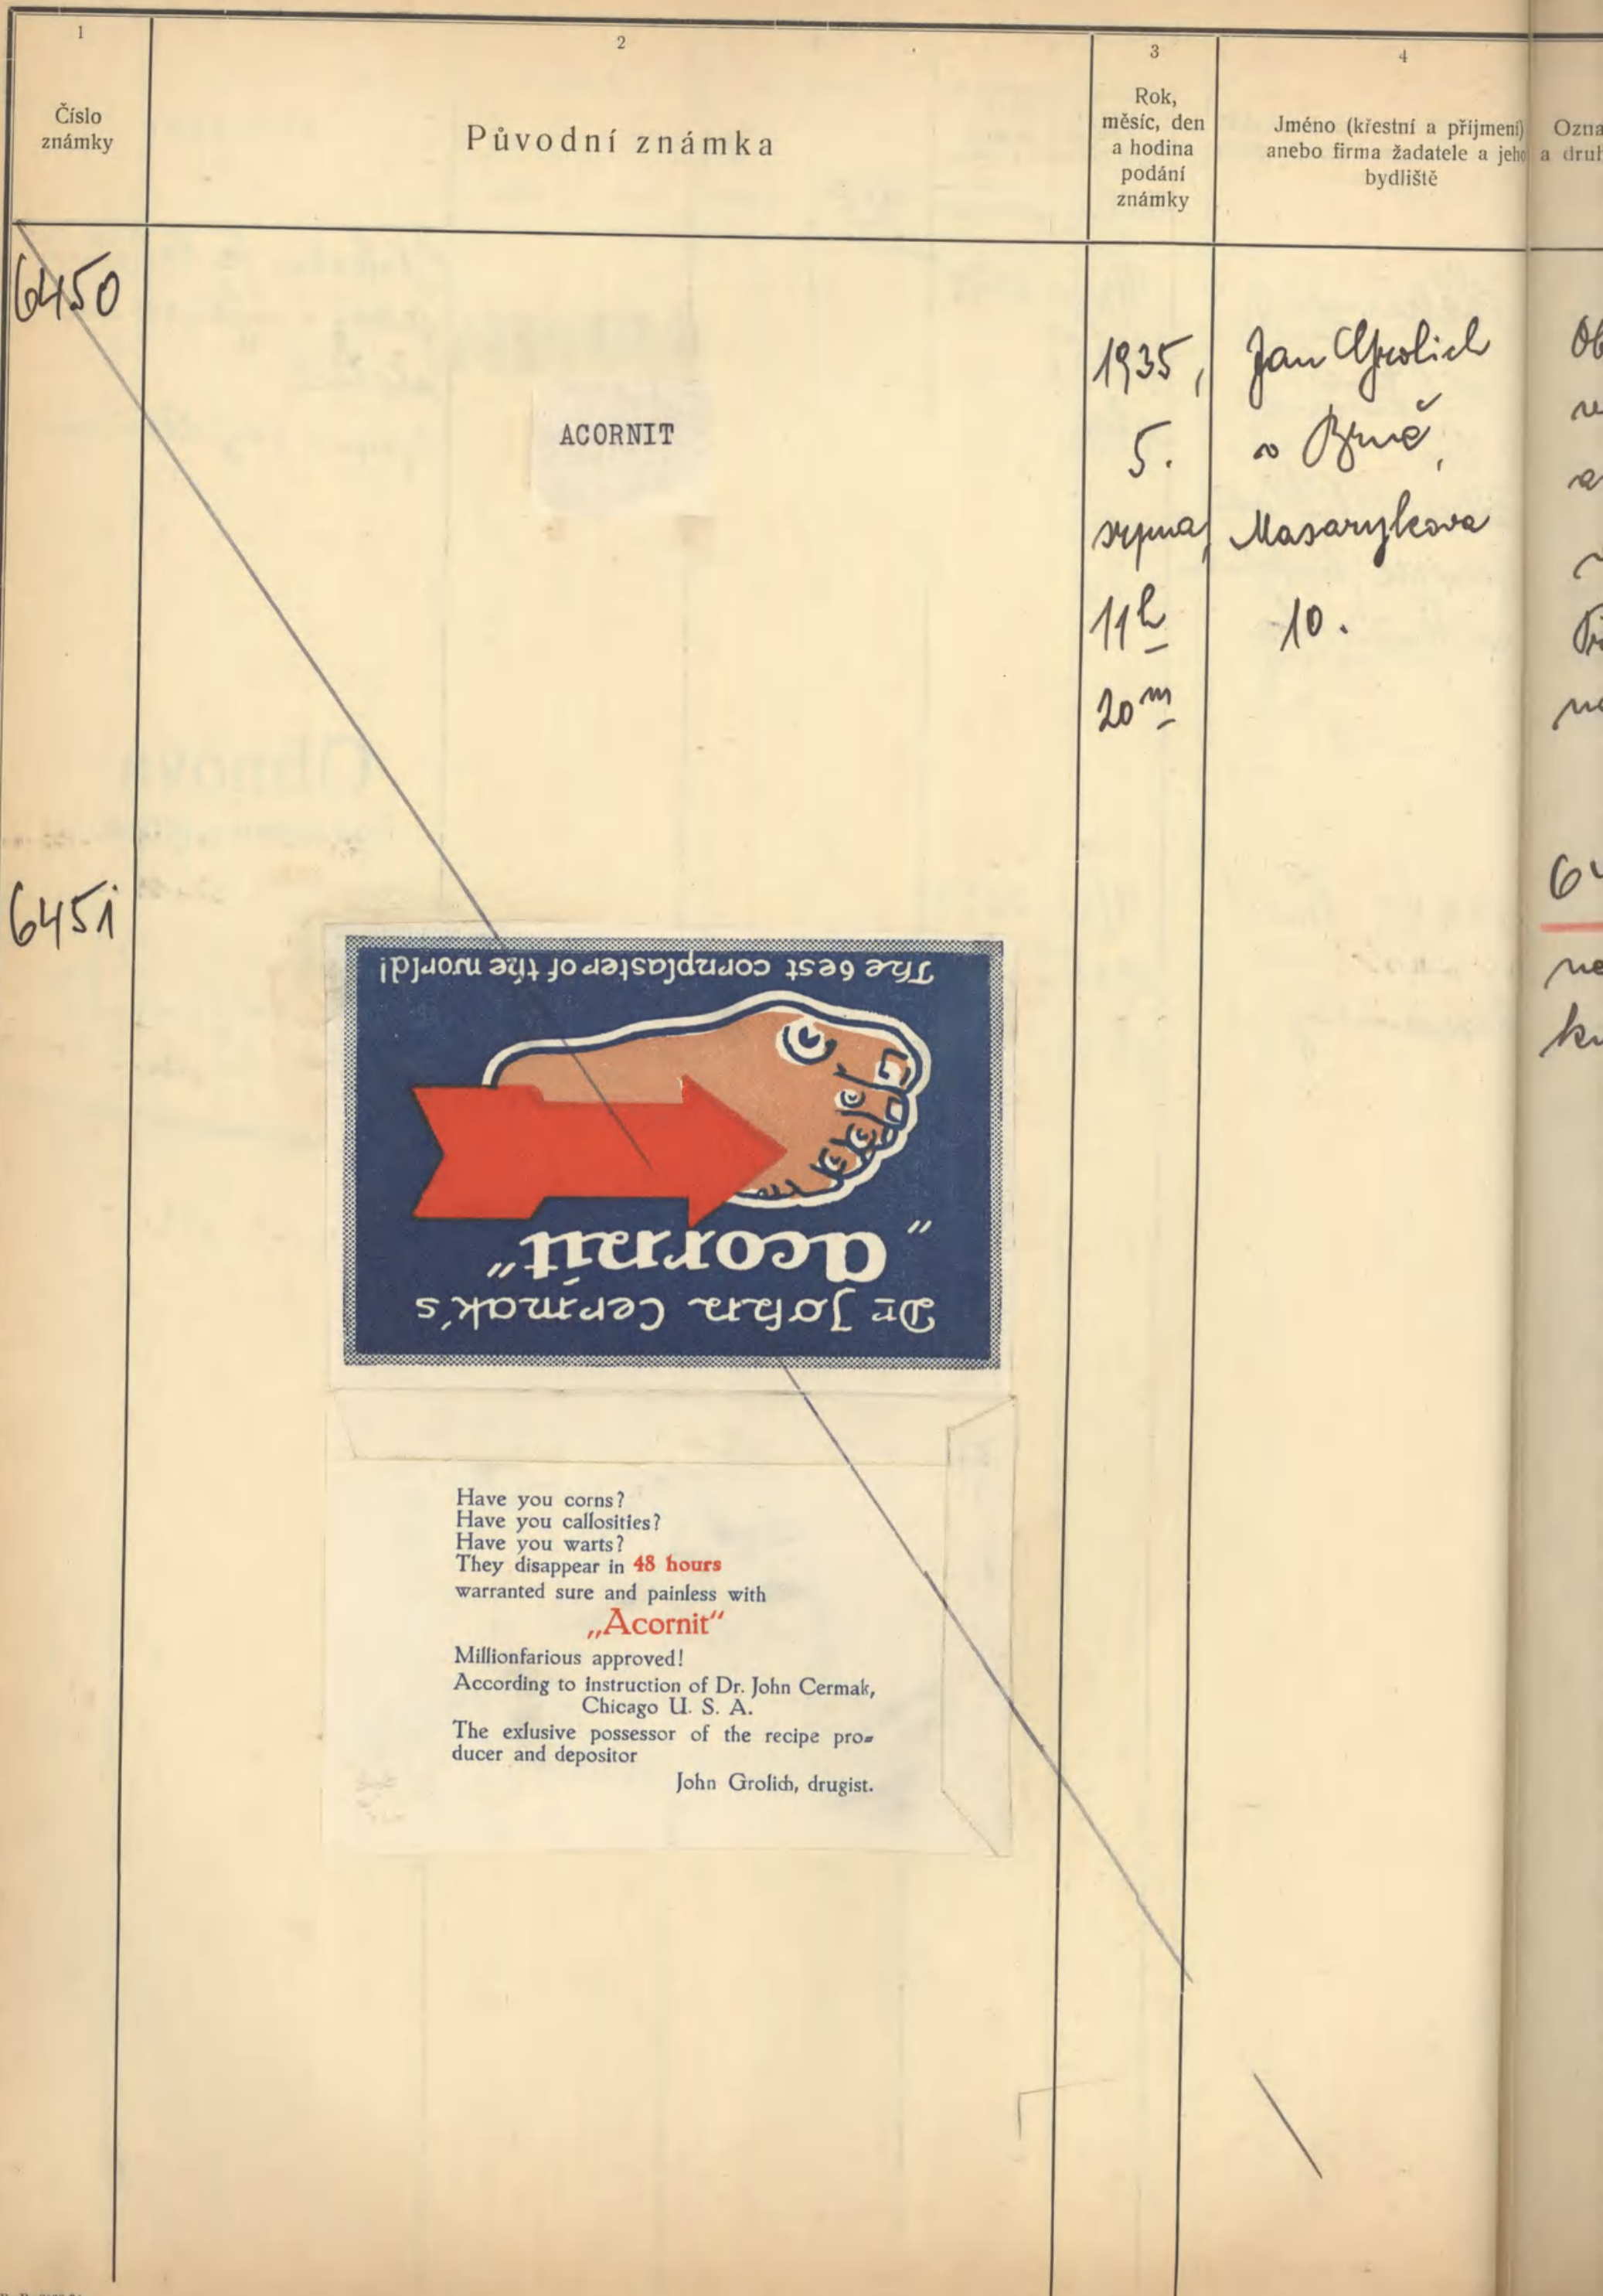 1
2
3
4
Číslo
známky
Původní známka
Rok,
měsíc, den
a hodina
podání
známky
Jméno (křestní a příjmení)
anebo firma žadatele a jeho
bydliště
Ozna
a druh
6450
ACORNIT
1935,
5.
srpna,
11h
20m
Jan Grolich
v Brně,
Masarykova
10.
6451
The best cornplaster of the world!
„acornit“
Dr John Cermak's
Have you corns?
Have you callosities?
Have you warts?
They disappear in 48 hours
warranted sure and painless with
„Acornit“
Millionfarious approved!
According to instruction of Dr. John Cermak,
Chicago U. S. A.
The exlusive possessor of the recipe pro=
ducer and depositor
John Grolich, drugist.